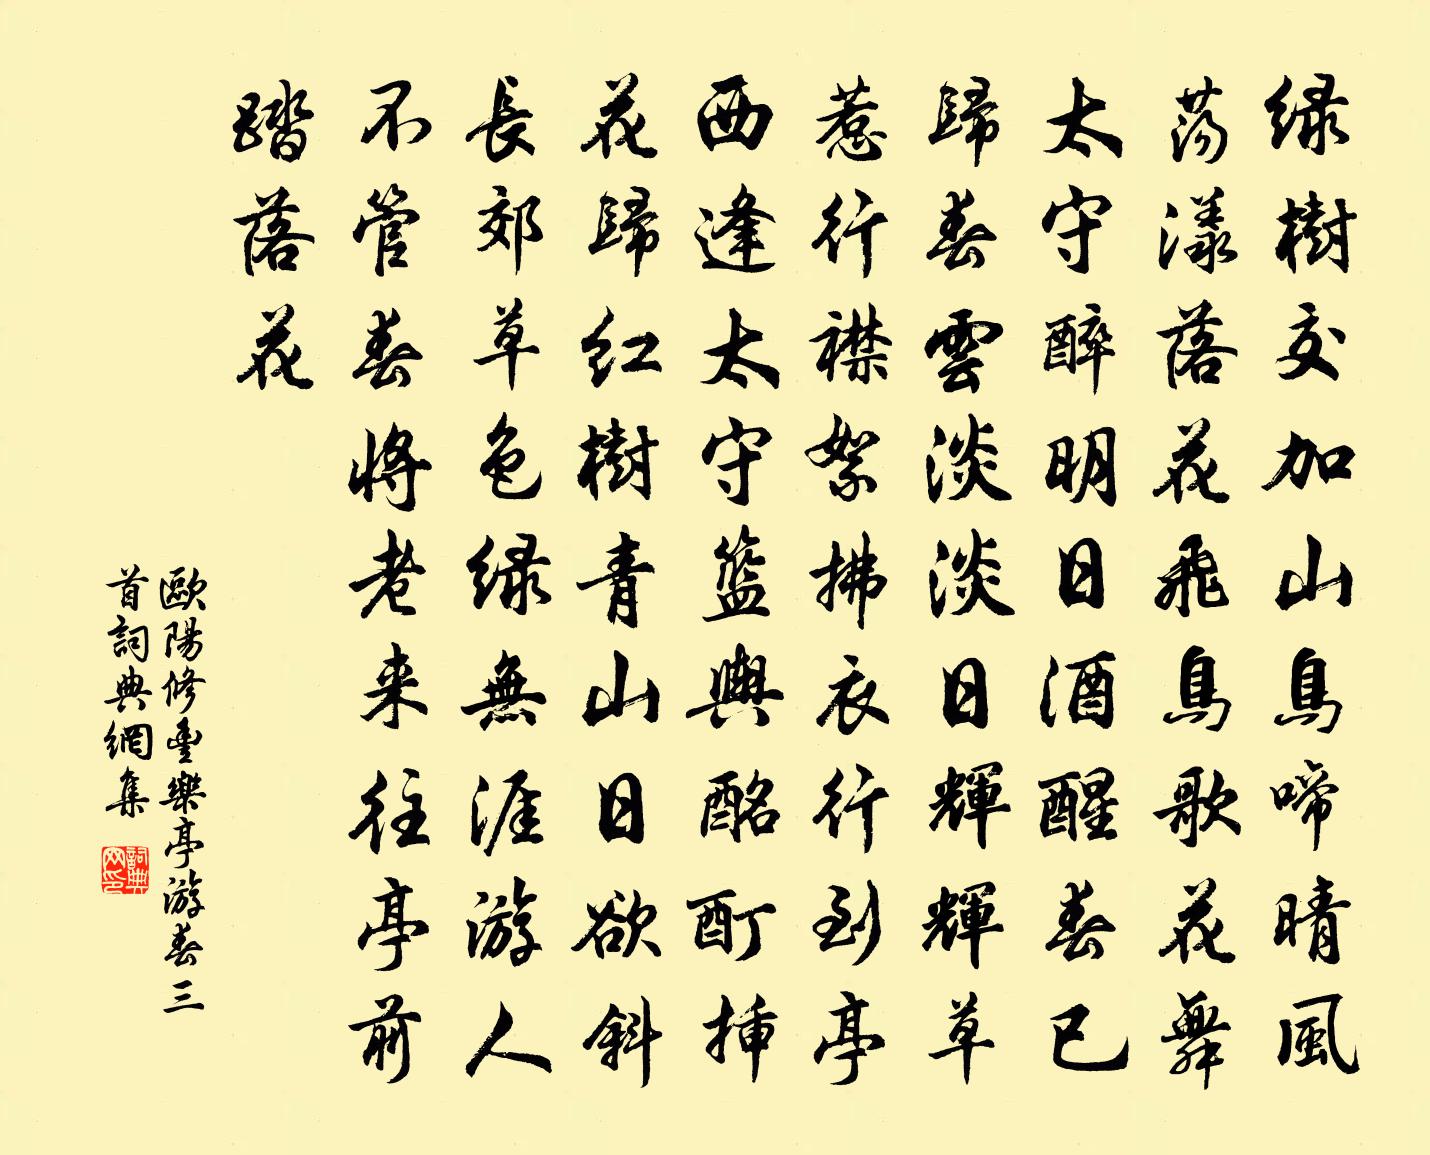 绿樹交加山鳥啼晴風
蕩漾落花飛鳥歌花舞
太守醉明日酒醒春已
歸春雲淡淡日輝輝草
惹行襟絮拂衣行到亭
西逢太守籃輿酩酊插
花歸红樹青山日欲斜
長郊草色绿無涯游人
不管春將老来往亭前
踏落花
歐陽修豐樂亭游春三
首詞典網集
詞典网印